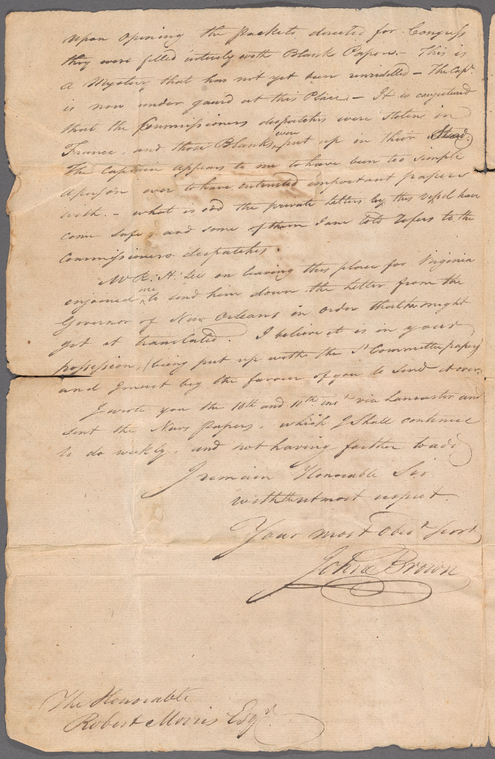 upon opening the packets directed for Congress
they were filled intirely with Blank Papers. This is
a Mystery that has not yet been unriddled – The Capt.
is now under guard at this Place, – It is conjectured
that the Commissioners dispatches were stolen in
France, and those Blanks were put up in their Stead.
The Captain appears to me to have been too simple
a person ever to have intrusted important papers
with. – what is odd the private letters by this vessel have
come safe, and some of them I am told refers to the
Commissioners dispatches.
Mr. R. H. Lee on leaving this place for Virginia
enjoined me to send him down the letter from the
Governor of New Orleans in order that he might
get it translated. I believe it is in your
possession, (being put up with the St. Committee papers)
and I must beg the favour of you to send it over.
I wrote you the 10th and 11th inst. via Lancaster and
sent the News Papers, which I shall continue
to do weekly, and not having farther to add
I remain Honorable Sir
with the utmost respect
Your most Obedt. Servt.
John Brown
The Honorable
Robert Morris Esqr.